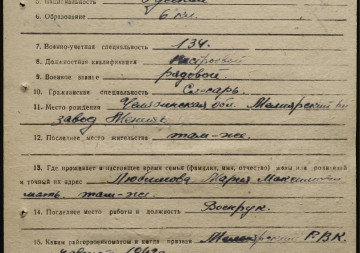 5. Национальность Русский
6. Образование 6 кл.
7. Военно-учетная специальность 134.
8. Должностная квалификация
9. Военное звание рядовой.
10. Гражданская специальность Слесарь
11. Место рождения обл.
завод
12. Последнее место жительства там-же.
13. Где проживает в настоящее время семья (фамилия, имя, отчество) жены или родителей
и точный их адрес Любимова Мария Максимовна
мать, там-же.
14. Последнее место работы и должность Военрук.
15. Каким райгорвоенкоматом и когда призван Р.В.К.